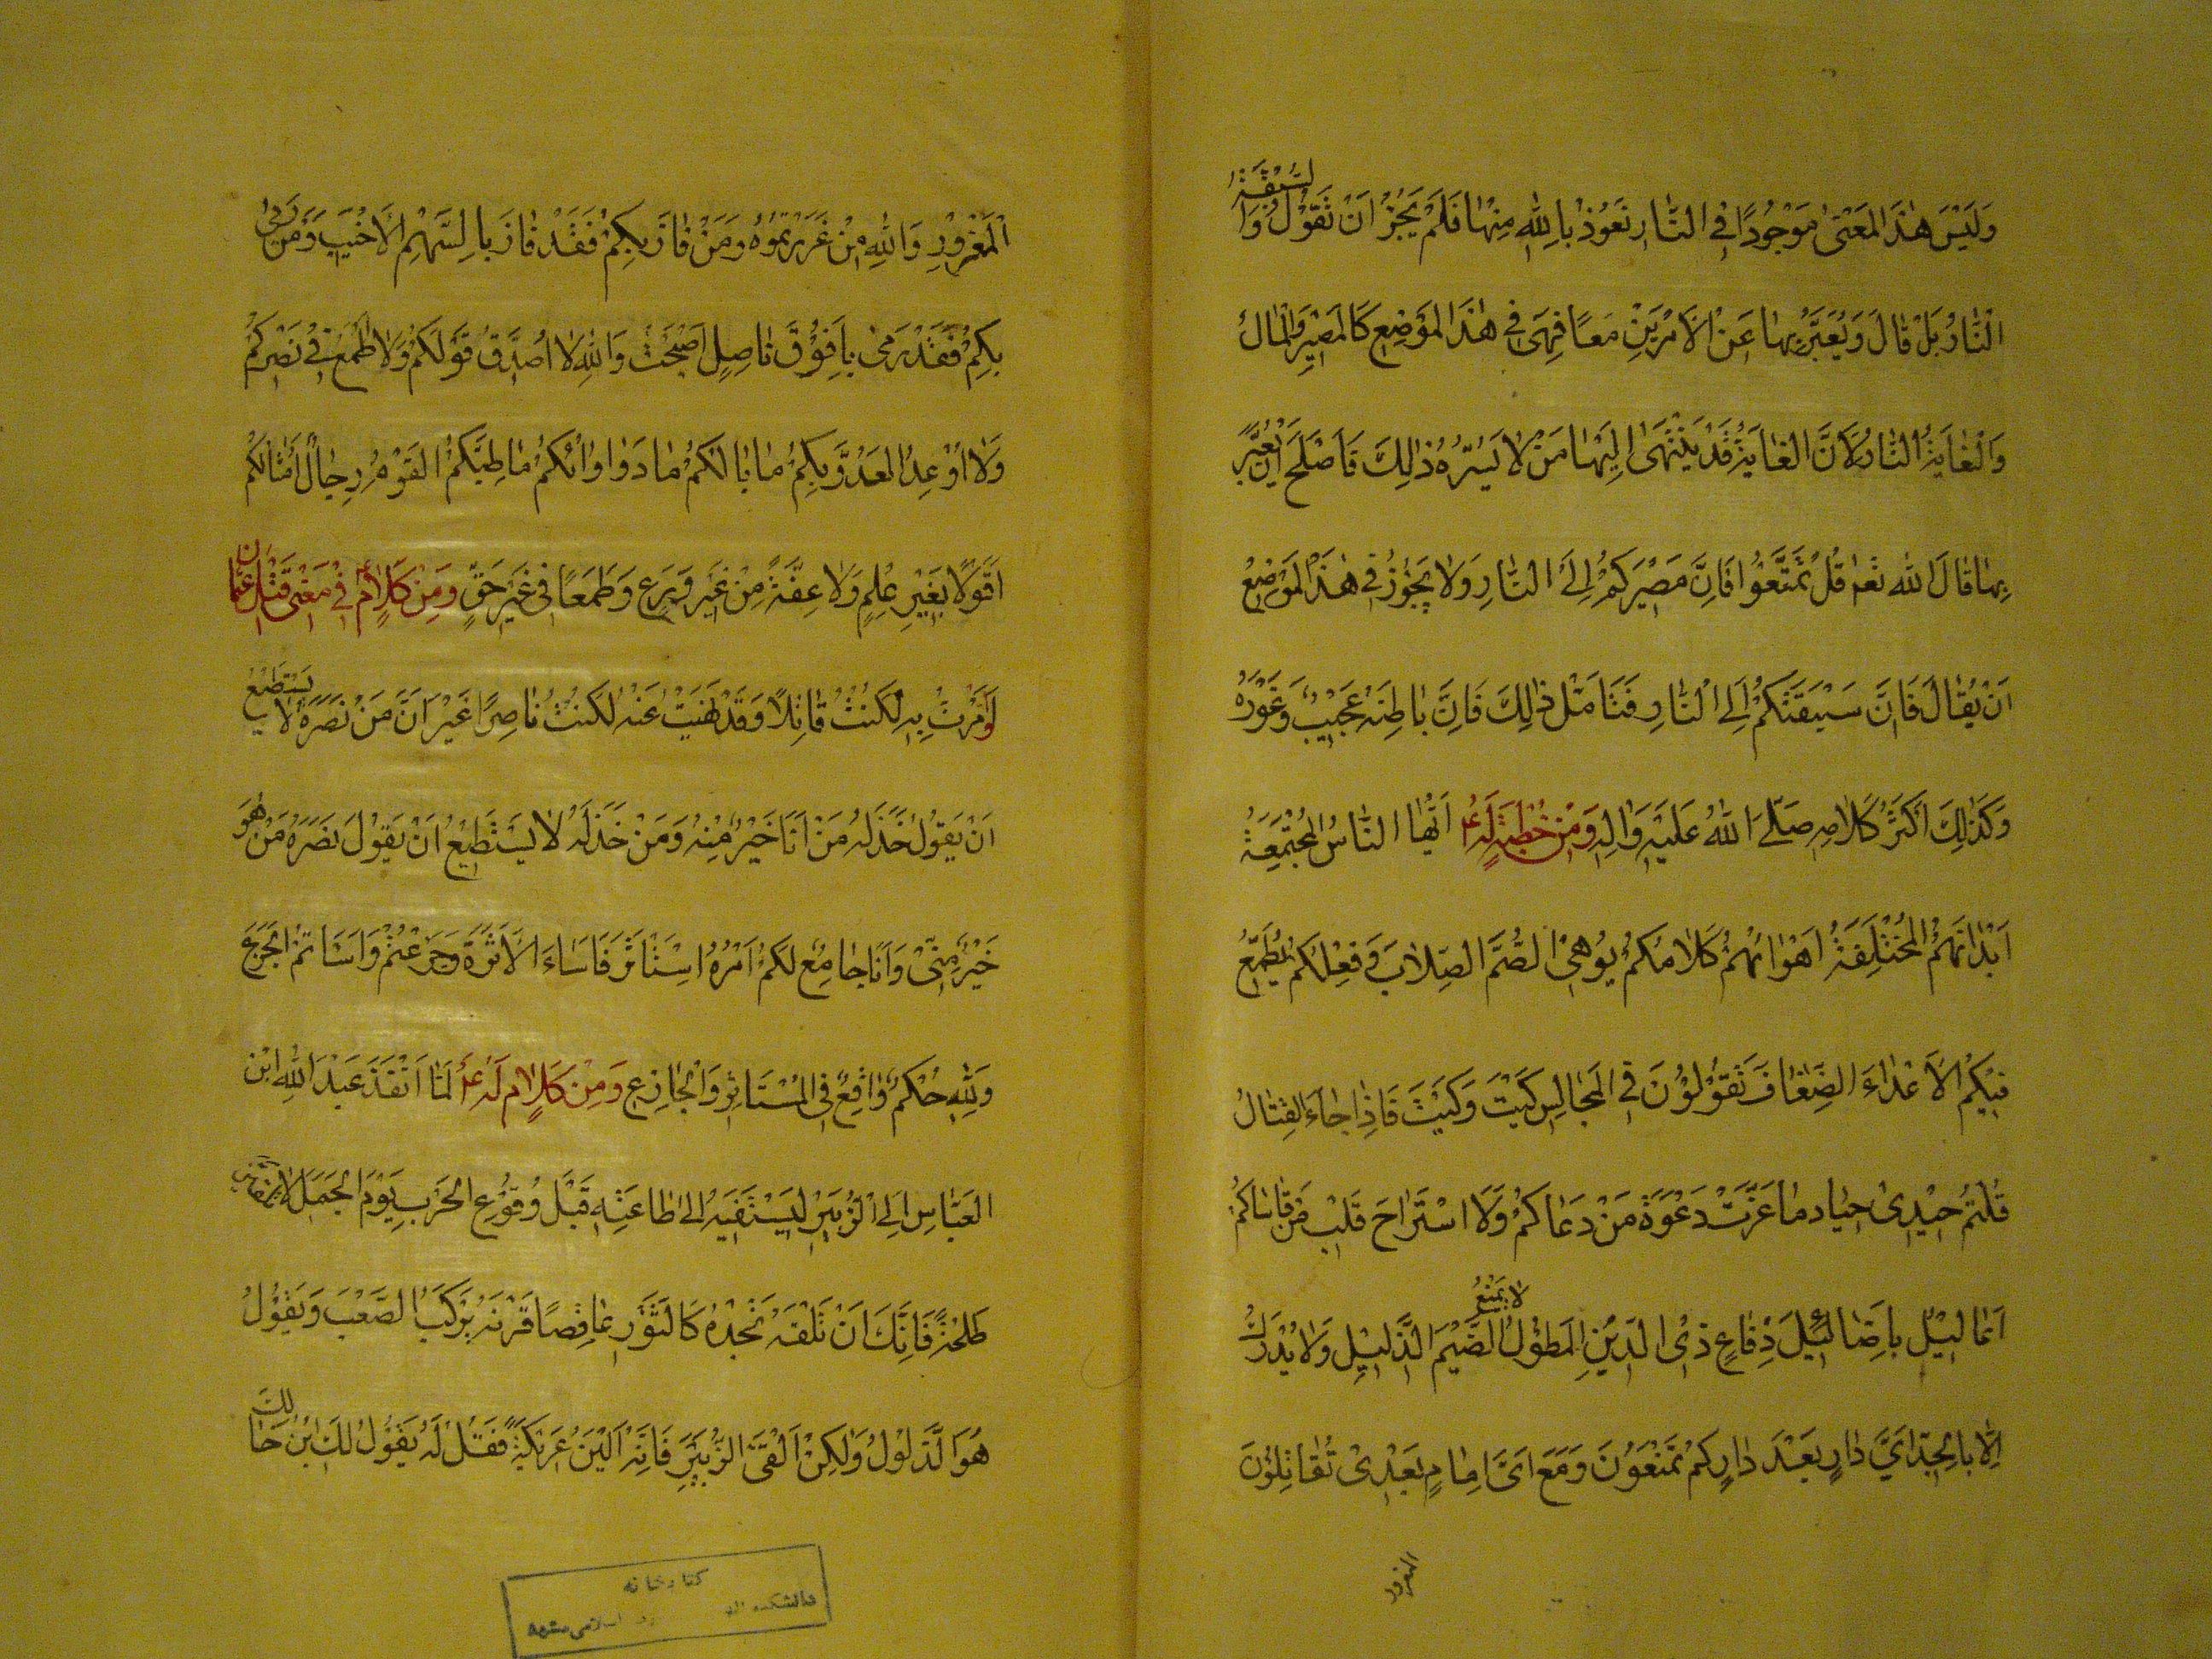 وَلَيْسَ هٰذَا الْمَعْنىٰ مَوْجُودًا فِي النَّارِ نَعُوذُ بِاللّٰهِ مِنْهَا فَلَمْ يَجُزْ اَنْ تَقُوْلَ وَالسَّبَقَةُ
النَّارُ بَلْ قَالَ وَيُعَبَّرُ بِهَا عَنِ الْاَمْرَيْنِ مَعًا فَهِىَ فِي هٰذَا الْمَوْضِعِ كَالْمَصِيْرِ وَالْمَاٰلِ
وَالْغَايَةُ النَّارُ لِاَنَّ الْغَايَةَ قَدْ يَنْتَهِىْ اِلَيْهَا مَنْ لَا يَسُرُّهُ ذٰلِكَ فَاَصْلَحَ اَنْ يُعَبَّرَ
بِهَا قَالَ اللّٰهُ تَعٰ قُلْ تَمَتَّعُوْا فَاِنَّ مَصِيْرَكُمْ اِلَى النَّارِ وَلَا يَجُوْزُ فِي هٰذَا الْمَوْضِعِ
اَنْ يُقَالَ فَاِنَّ سَبَقَتَكُمْ اِلَى النَّارِ فَتَاَمَّلْ ذٰلِكَ فَاِنَّ بَاطِنَهُ عَجِيْبٌ وَغَوْرَهُ
وَكَذٰلِكَ اَكْثَرُ كَلَامِهِ صَلَّى اللّٰهُ عَلَيْهِ وَاٰلِهِ وَمِنْ خُطْبَةٍ لَهُ ع اَيُّهَا النَّاسُ الْمُجْتَمِعَةُ
اَبْدَانُهُمْ الْمُخْتَلِفَةُ اَهْوَائُهُمْ كَلَامُكُمْ يُوْهِىْ الصُّمَّ الصِّلَابَ وَفِعْلُكُمْ يُطْمِعُ
فِيْكُمْ الْاَعْدَاءَ الضِّعَافَ تَقُوْلُوْنَ فِي الْمَجَالِسِ كَيْتَ وَكَيْتَ فَاِذَا جَاءَ الْقِتَالُ
قُلْتُمْ حِيْدِىْ حَيَادِ مَا عَزَّتْ دَعْوَةُ مَنْ دَعَاكُمْ وَلَا اسْتَرَاحَ قَلْبُ مَنْ قَاسَاكُمْ
اَعَالِيْلُ بِاَضَالِيْلَ دِفَاعَ ذِى الدَّيْنِ الْمَطُوْلِ لَا يَمْنَعُ الضَّيْمَ الذَّلِيْلُ وَلَا يُدْرَكُ
اِلَّا بِالْجِدِّ اَىَّ دَارٍ بَعْدَ دَارِكُمْ تَمْنَعُوْنَ وَمَعَ اَىِّ اِمَامٍ بَعْدِىْ تُقَاتِلُوْنَ
المغرور
الْمَغْرُوْرُ وَاللّٰهِ مَنْ غَرَرْتُمُوْهُ وَمَنْ فَازَ بِكُمْ فَقَدْ فَازَ بِالسَّهْمِ الْاَخْيَبِ وَمَنْ رَمٰى
بِكُمْ فَقَدْ رَمٰى بِاَفْوَقَ نَاصِلٍ اَصْبَحْتُ وَاللّٰهِ لَا اُصَدِّقُ قَوْلَكُمْ وَلَا اَطْمَعُ فِي نَصْرِكُمْ
وَلَا اُوْعِدُ الْعَدُوَّ بِكُمْ مَا بَالُكُمْ مَا دَوَاؤُكُمْ مَا طِبُّكُمْ الْقَوْمُ رِجَالٌ اَمْثَالُكُمْ
اَقَوْلًا بِغَيْرِ عِلْمٍ وَلَا عِفَّةً مِنْ غَيْرِ وَرَعٍ وَطَمَعًا فِي غَيْرِ حَقٍّ وَمِنْ كَلَامٍ لَهُ فِيْ مَعْنىٰ قَتْلِ عُثْمَانَ
لَوْ اَمَرْتُ بِهِ لَكُنْتُ قَاتِلًا وَقَدْ نَهَيْتُ عَنْهُ لَكُنْتُ نَاصِرًا غَيْرَ اَنَّ مَنْ نَصَرَهُ لَا يَسْتَطِيْعُ
اَنْ يَقُوْلَ خَذَلَهُ مَنْ اَنَا خَيْرٌ مِنْهُ وَمَنْ خَذَلَهُ لَا يَسْتَطِيْعُ اَنْ يَقُوْلَ نَصَرَهُ مَنْ هُوَ
خَيْرٌ مِنِّىْ وَاَنَا جَامِعٌ لَكُمْ اَمْرَهُ اسْتَاْثَرَ فَاَسَاءَ الْاَثَرَةَ وَجَزَعْتُمْ وَاَسَاْتُمْ الْجَزَعَ
وَلِلّٰهِ حُكْمٌ وَاقِعٌ فِي الْمُسْتَاْثِرِ وَالْجَازِعِ وَمِنْ كَلَامٍ لَهُ ع لَمَّا اَنْفَذَ عَبْدَ اللّٰهِ ابْنَ
الْعَبَّاسِ اِلَى الْزُّبَيْرِ لِيَسْتَفِيْئَهُ اِلىٰ طَاعَتِهِ قَبْلَ وُقُوْعِ الْحَرْبِ يَوْمَ الْجَمَلِ لَا تَلْقَيَنَّ
طَلْحَةَ فَاِنَّكَ اَنْ تَلْقَهُ تَجِدْهُ كَالثَّوْرِ عَاقِصًا قَرْنَهُ يَرْكَبُ الصَّعْبَ وَيَقُوْلُ
هُوَ الذَّلُوْلُ وَلٰكِنْ اَلْقِ الزُّبَيْرَ فَاِنَّهُ اَلْيَنُ عَرِيْكَةً فَقُلْ لَهُ يَقُوْلُ لَكَ ابْنُ خَالِكَ
كتابخانه
دانشكده اسلامى مشهد